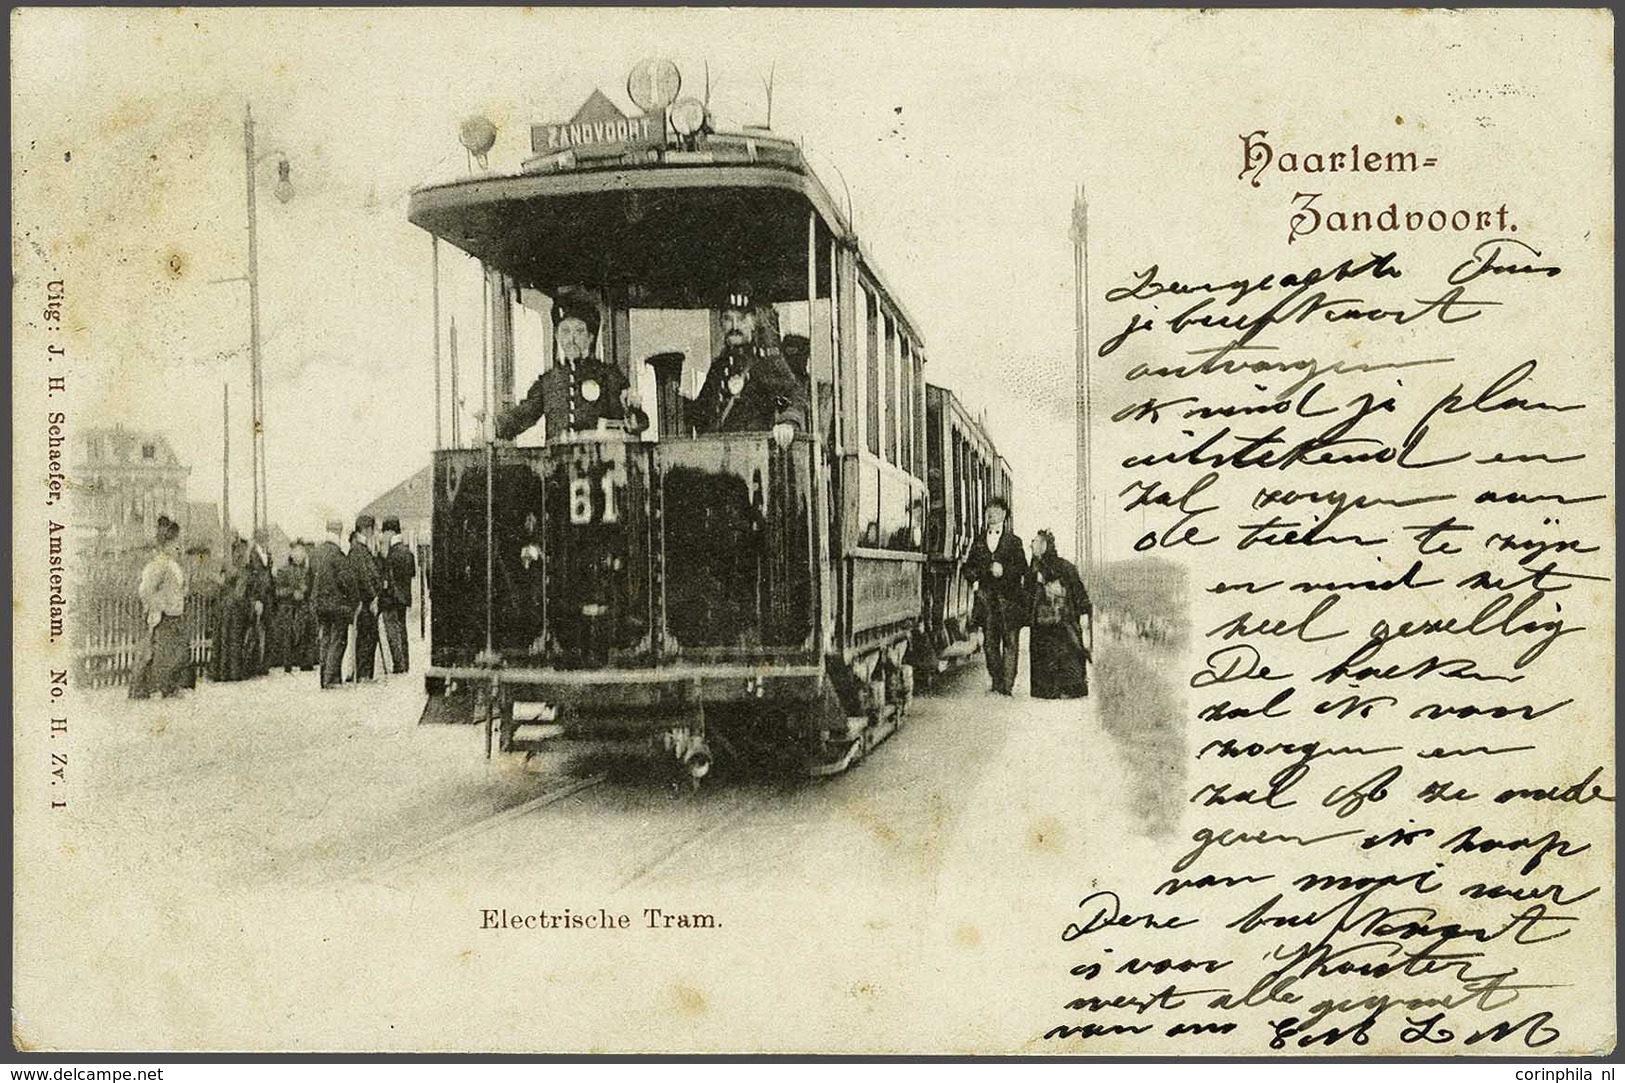 ZANDVOORT
1
61
Haarlem=
Zandvoort.
Zeergeachte
je briefkaart
ontvangen
ik vind je plan
uitstekend en
zal zorgen aan
de trein te zijn
en vind het
heel gezellig
De boeken
zal ik voor
zorgen en
zal ze mede
geven ik hoop
van mooi weer
Deze briefkaart
is voor Wouter
weest alle gegroet
van ons E M L M
Electrische Tram.
Uitg: J. H. Schaefer, Amsterdam. No. H. Zv. 1
www.delcampe.net
corinphila nl